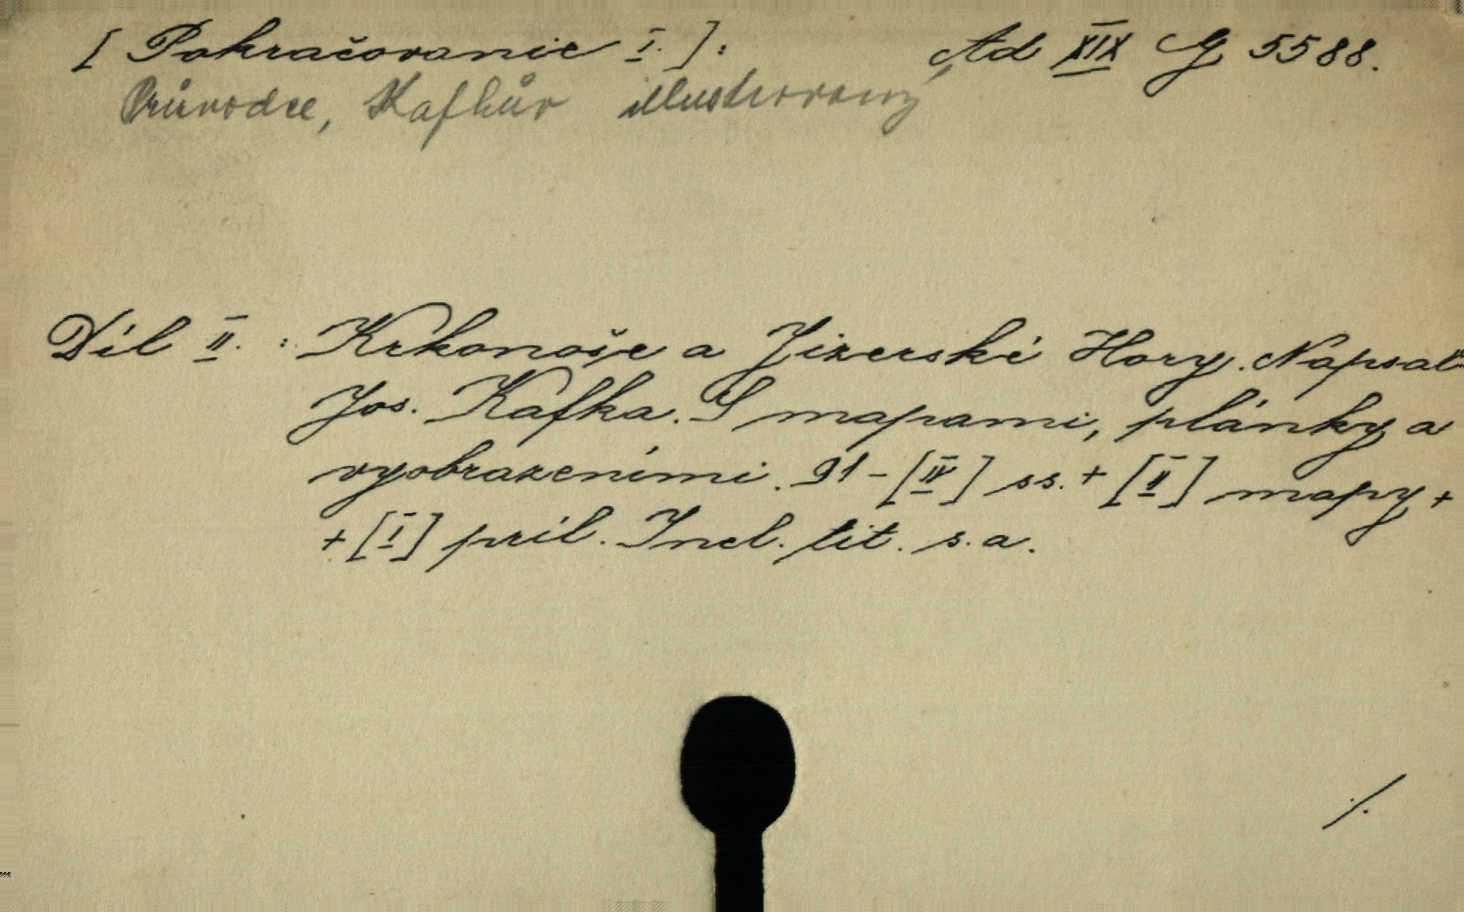 [Pokračovanie I.]: Ad XIX G 5588.
Průvodce, Kafkův illustrovaný
Díl II. : Krkonoše a Jizerské Hory. Napsal
Jos. Kafka. S mapami, plánky a
vyobrazeními. 91-[IV] ss. + [II] mapy +
+ [I] príl. Incl. tit. s. a.
./.